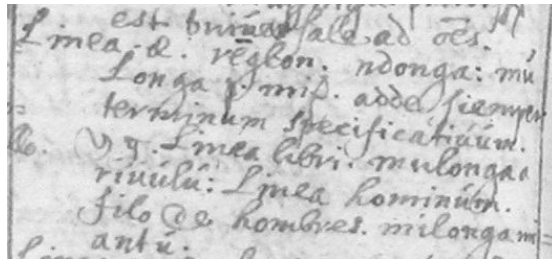 est buiúersale ad oēs.
Linea. æ. rēglon. ndonga: mú
Longa p. mi. adde siemper
terminum specificatiuúm.
vg. Linea libri. mulonga a
riuúlú: Linea hominúm.
filo de hombres. milonga mi
antú.